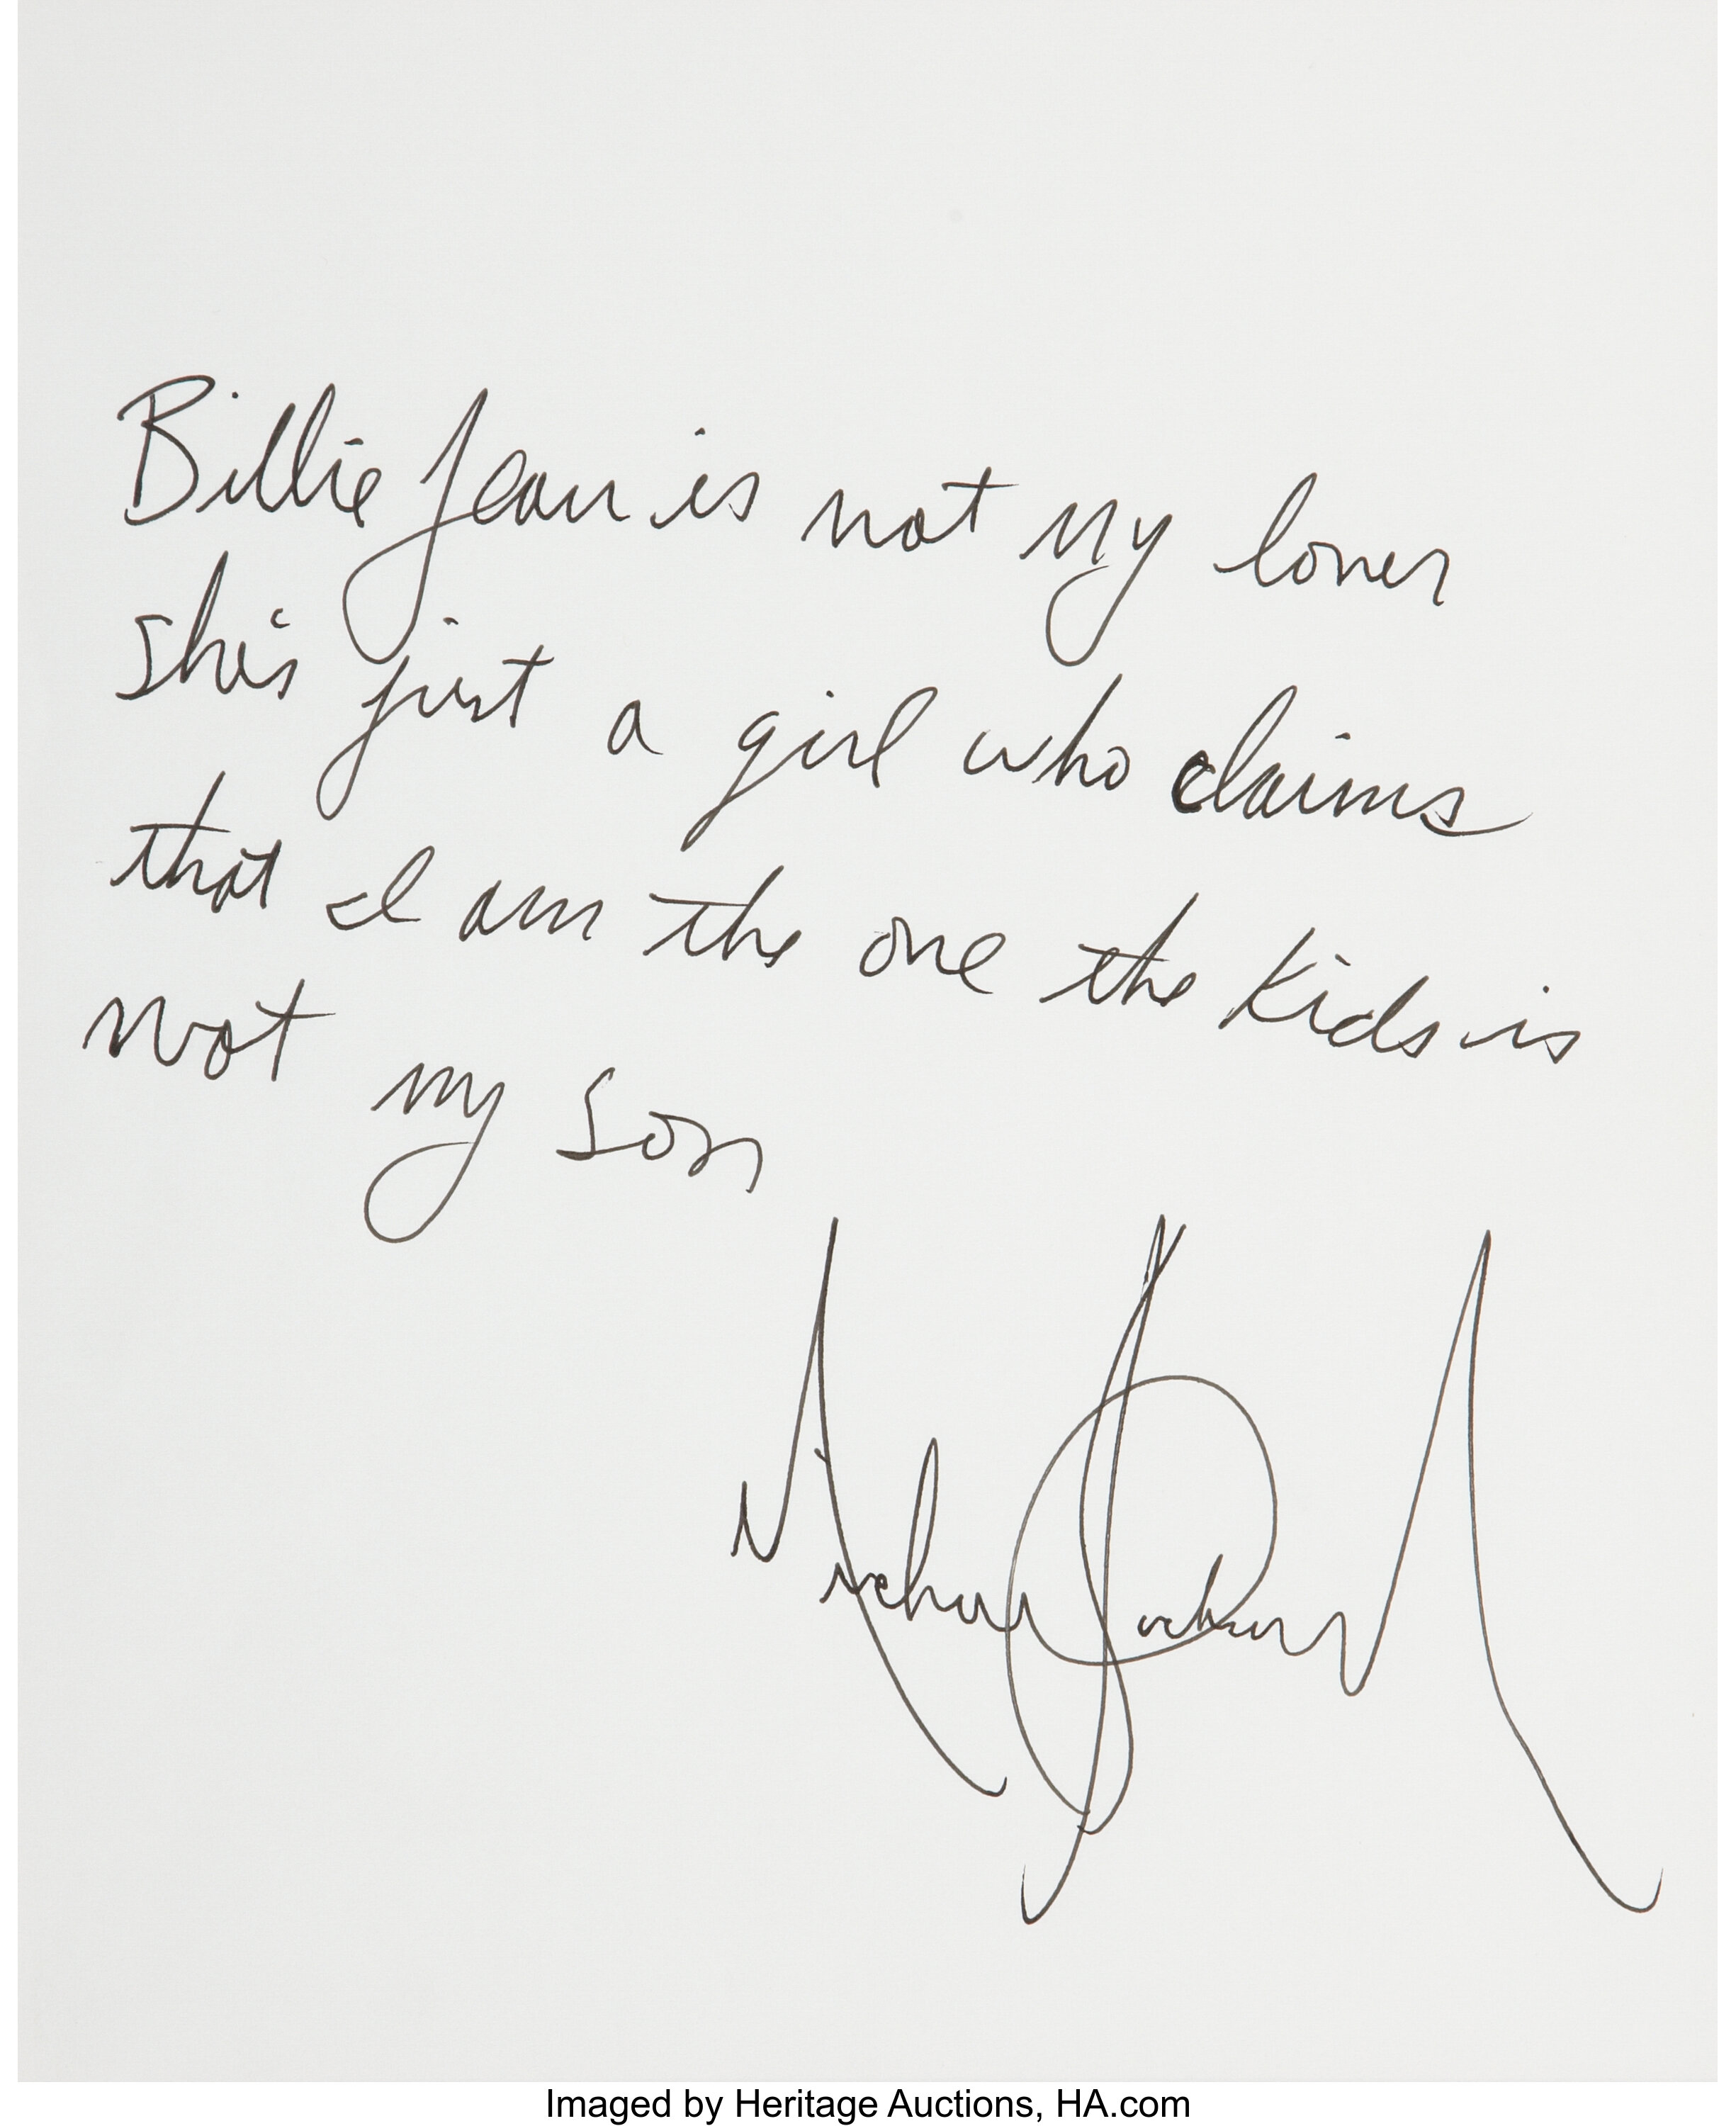 Billie Jean is not my lover
she's just a girl who claims
that I am the one the kids is
not my son
Michael Jackson
Imaged by Heritage Auctions, HA.com